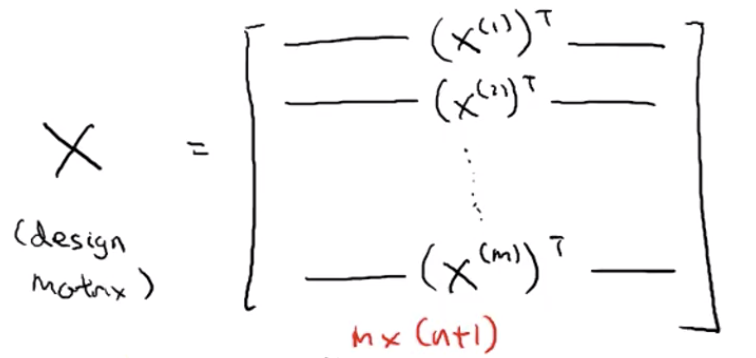 X = [ — (x⁽¹⁾)ᵀ —
— (x⁽²⁾)ᵀ —
⋮
— (x⁽ᵐ⁾)ᵀ — ]
(design
matrix)
m × (n+1)